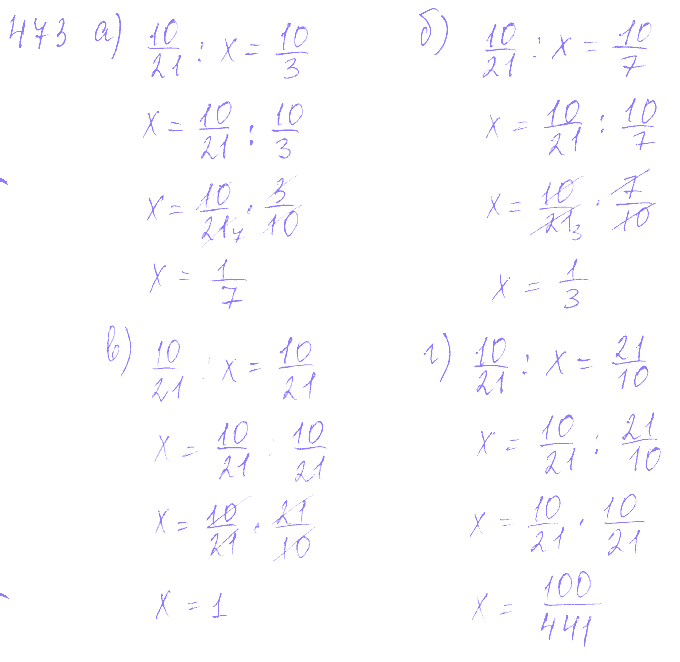 473 а) 10/21 : x = 10/3
x = 10/21 : 10/3
x = 10/21 7 · 3/10
x = 1/7
б) 10/21 : x = 10/7
x = 10/21 : 10/7
x = 10/21 3 · 7/10
x = 1/3
в) 10/21 : x = 10/21
x = 10/21 : 10/21
x = 10/21 · 21/10
x = 1
г) 10/21 : x = 21/10
x = 10/21 : 21/10
x = 10/21 · 10/21
x = 100/441